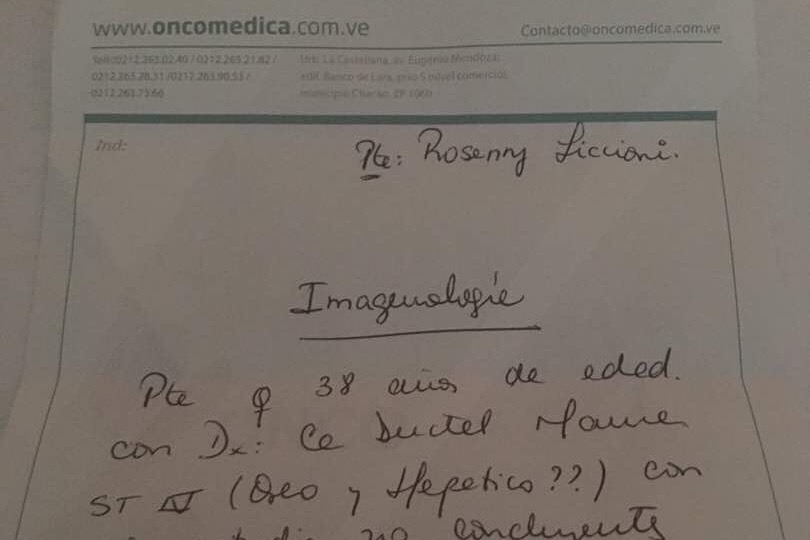 www.oncomedica.com.ve
Contacto@oncomedica.com.ve
Telf.:0212.263.02.40 / 0212.263.21.82 /
0212.263.28.31 /0212.263.90.53 /
0212.263.73.66
Urb. La Castellana, av. Eugenio Mendoza,
edif. Banco de Lara, piso 5 nivel comercial,
municipio Chacao. ZP 1060
Ind:
Pte: Rosenny Liccioni.
Imagenología
Pte ♀ 38 años de edad.
con Dx: Ca Ductal Mama
ST IV (Oseo y Hepatico??) con
no concluyente